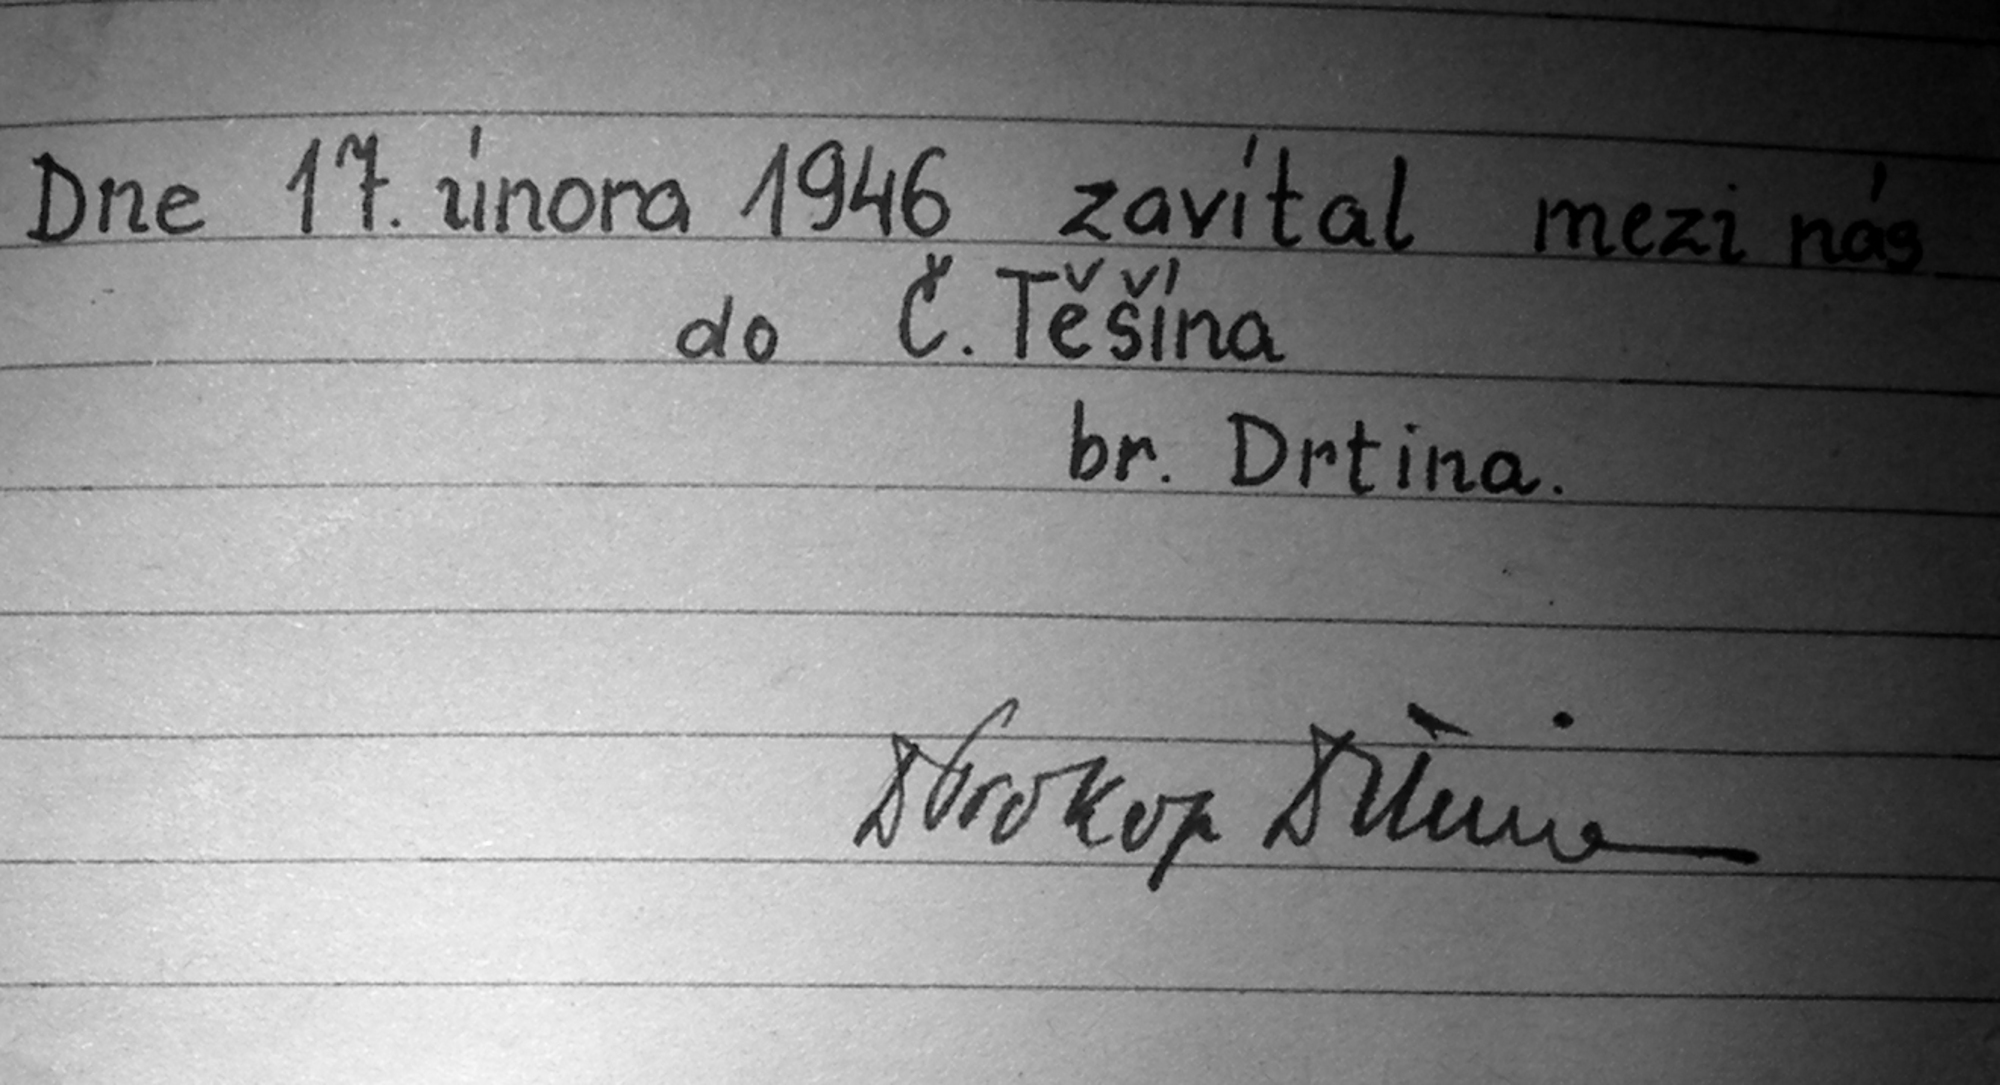 Dne 17. února 1946 zavítal mezi nás
do Č. Těšína
br. Drtina.
Prokop Drtina